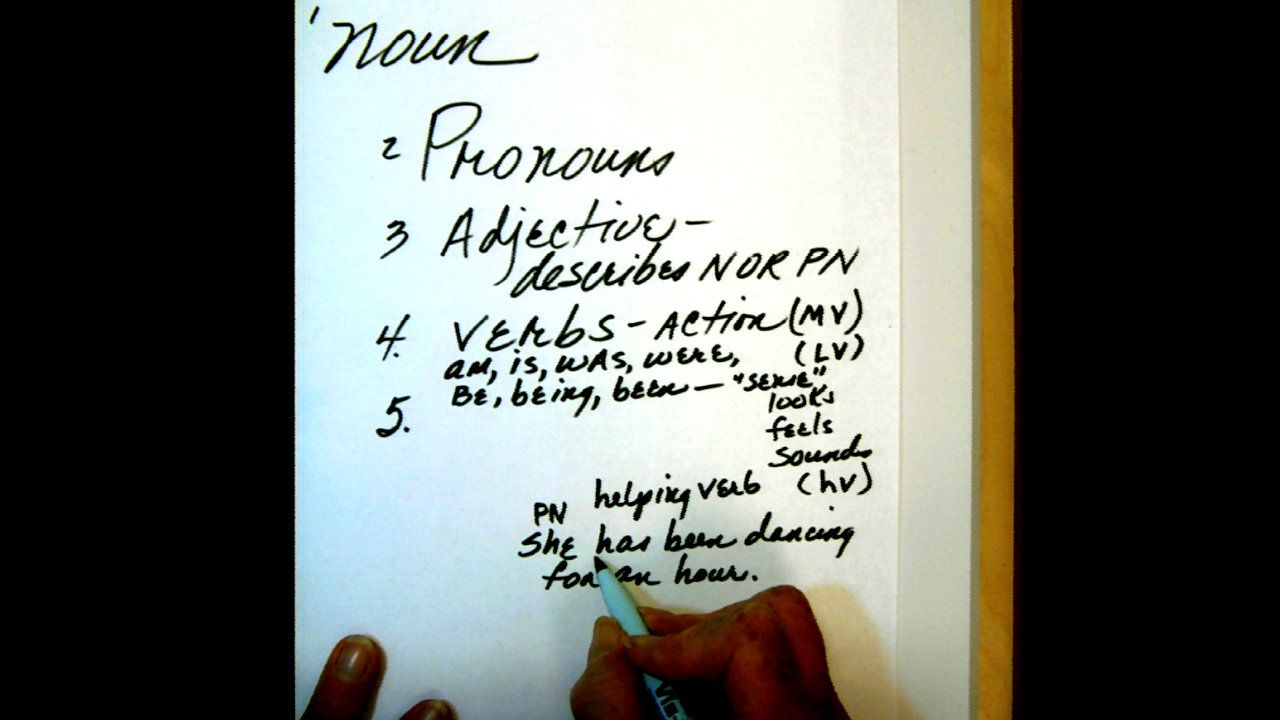 1 noun
2 Pronouns
3 Adjective -
describes N OR PN
4. Verbs - Action (MV)
am, is, was, were, (LV)
Be, being, been - "sense"
looks
5. feels
sounds
helping verb (hv)
PN
She has been dancing
for an hour.